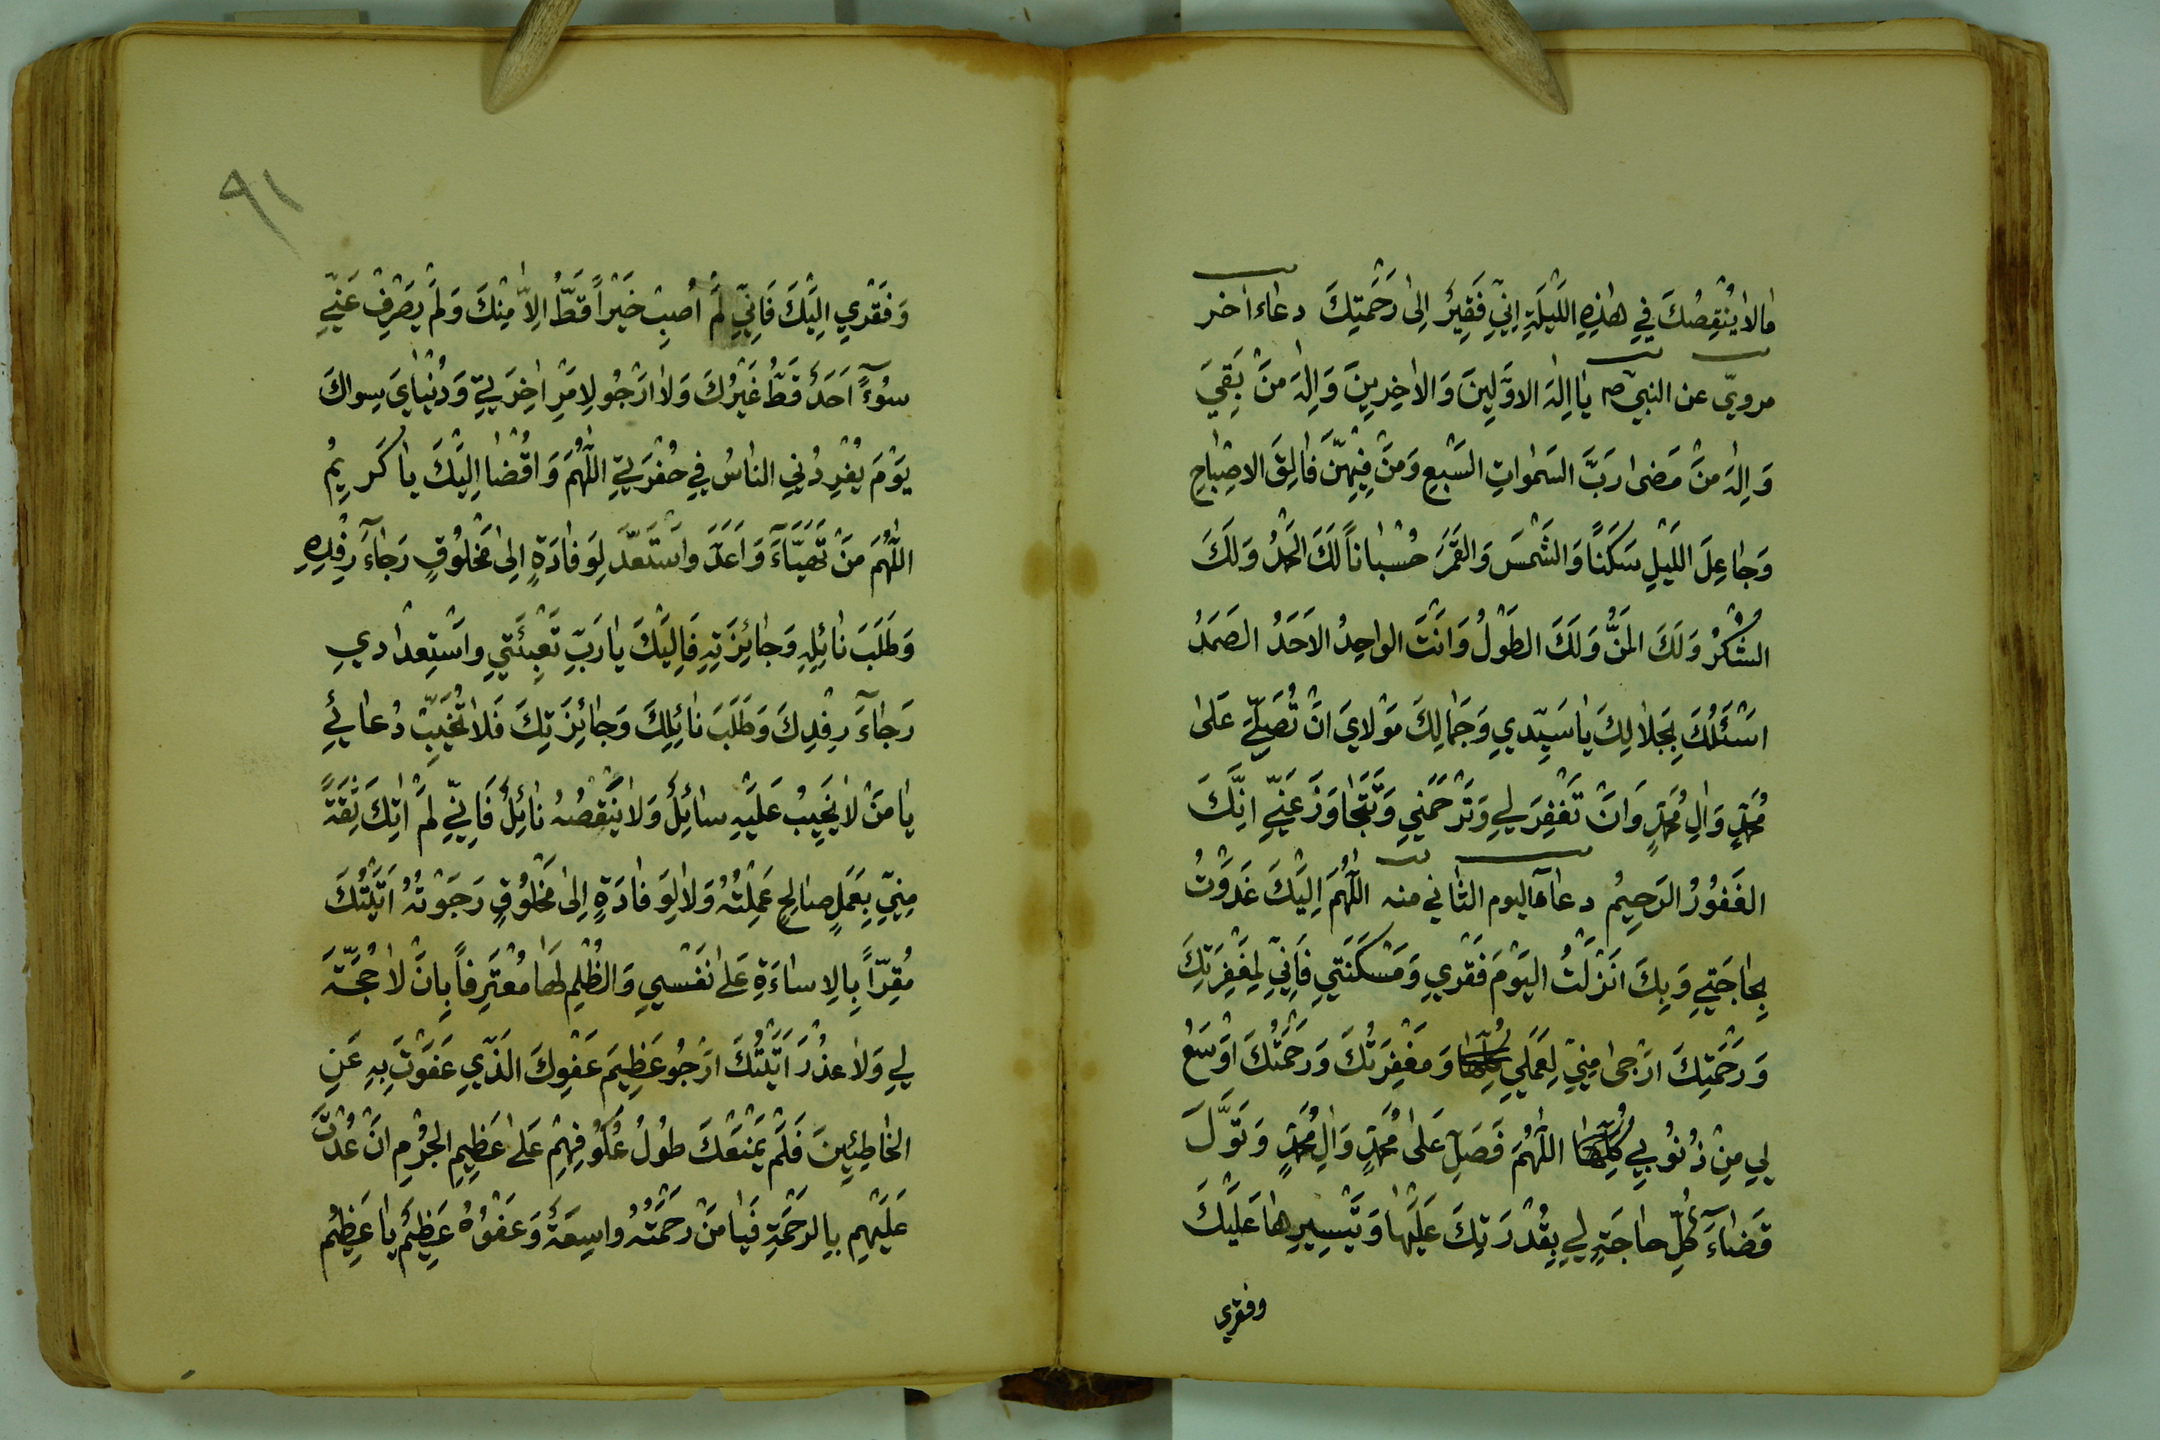 مٰالاٰيُنْقِصُكَ فِي هٰذِهِ اللَّيْلَةِ اِنّيِ فَقِيرٌ اِلىٰ رَحْمَتِكَ دعاء اخر
مرويّ عن النبيّ ص يٰا اِلٰهَ الاوَّلِينَ وَالاٰخِرِينَ وَاِلٰهَ مَنْ بَقِيَ
وَاِلٰهَ مَنْ مَضىٰ رَبَّ السَمٰواتِ السَّبْعِ وَمَنْ فِيْهِنَّ فٰالِقَ الاصْبٰاحِ
وَجٰاعِلَ اللَيْلِ سَكَنًا وَالشَمْسَ وَالقَمَرَ حُسْبٰاناً لَكَ الحَمْدُ وَلَكَ
الشُكْرُ وَلَكَ المَنُّ وَلَكَ الطَوْلُ وَانْتَ الواحِدُ الاَحَدُ الصَمَدُ
اسْئَلُكَ بِجَلاٰلِكَ يٰاسَيِّدِي وَجَمٰالِكَ مَوْلايَ انْ تُصَلِّيَ عَلىٰ
مُحَمَّدٍ وَالِ مُحَمَّدٍ وَانْ تَغْفِرَ لِي وَتَرْحَمَنِي وَتَتَجٰاوَزَ عَنِّي انَّكَ
الغَفُورُ الرَحِيمُ دعاء اليوم الثاني منه اللّٰهُمَ اِلَيْكَ غَدَوْتُ
بِحٰاجَتِي وَبِكَ انْزَلْتُ اليَوْمَ فَقْرِي وَمَسْكَنَتِي فَاِنّيِ لِمَغْفِرَتِكَ
وَرَحْمَتِكَ ارْجىٰ مِنّيِ لِعَمَلِي وَمَغْفِرَتُكَ وَرَحْمَتُكَ اوْسَعُ
لِي مِنْ ذُنُوبِي كُلِّهٰا اللّٰهُمَ فَصَلِّ عَلىٰ مُحَمَّدٍ وَالِ مُحَمَّدٍ وَتَوَلَّ
قَضٰاءَ كُلِّ حاجَتٍ لِي بِقُدْرَتِكَ عَلَيْهٰا وَتَيْسِيرِهٰا عَلَيْكَ
وفقري
٩١
وَفَقْرِي اِلَيْكَ فَاِنّيِ لَمْ اُصِبْ خَيْراً قَطُّ اِلاّٰ مِنْكَ وَلَمْ يَصْرِفْ عَنّيِ
سُوءً اَحَدٌ قَطُّ غَيْرُكَ وَلاٰ ارْجُو لِامْرِ اٰخِرَتِي وَدُنْيٰايَ سِواكَ
يَوْمَ يُفْرِدُنِي النٰاسُ فِي حُفْرَتِي اللّٰهُمَ وَاقْضٰا اِلَيْكَ يٰا كَرِيمُ
اللّٰهُمَ مَنْ تَهَيَّاءَ وَاَعَدَّ واسْتَعَدَّ لِوَفٰادَةٍ اِلىٰ مَخْلُوقٍ رَجٰاءَ رِفْدِهِ
وَطَلَبَ نٰائِلِهِ وَجٰائِزَتِهِ فَاِلَيْكَ يٰارَبِّ تَعْبِئَتِي واسْتِعْدٰادِي
رَجٰاءَ رِفْدِكَ وَطَلَبَ نٰائِلِكَ وَجٰائِزَتِكَ فَلاٰ تُخَيِّبْ دُعٰائِي
يٰا مَنْ لاٰ يَخِيبُ عَلَيْهِ سٰائِلٌ وَلاٰ يَنْقُصُهُ نٰائِلٌ فَاِنّيِ لَمْ اٰتِكَ ثِقَةً
مِنّيِ بِعَمَلٍ صٰالِحٍ عَمِلْتُهُ وَلاٰ لِوَفٰادَةٍ اِلىٰ مَخْلُوقٍ رَجَوْتُهُ اَتَيْتُكَ
مُقِرّاً بِالاِسٰاءَةِ عَلىٰ نَفْسِي وَالظُلْمِ لَهٰا مُعْتَرِفاً بِانْ لاٰ حُجَّةَ
لِي وَلاٰ عُذْرَ اَتَيْتُكَ ارْجُو عَظِيمَ عَفْوِكَ الَذّيِ عَفَوْتَ بِهِ عَنِ
الخٰاطِئِينَ فَلَمْ يَمْنَعْكَ طُولُ عُكُوفِهِمْ عَلىٰ عَظِيمِ الجُرْمِ انْ عُدْتَ
عَلَيْهِم بِالرَحْمَةِ فَيٰا مَنْ رَحْمَتُهُ واسِعَةٌ وَعَفْوُهُ عَظِيمٌ يٰا عَظِيمُ